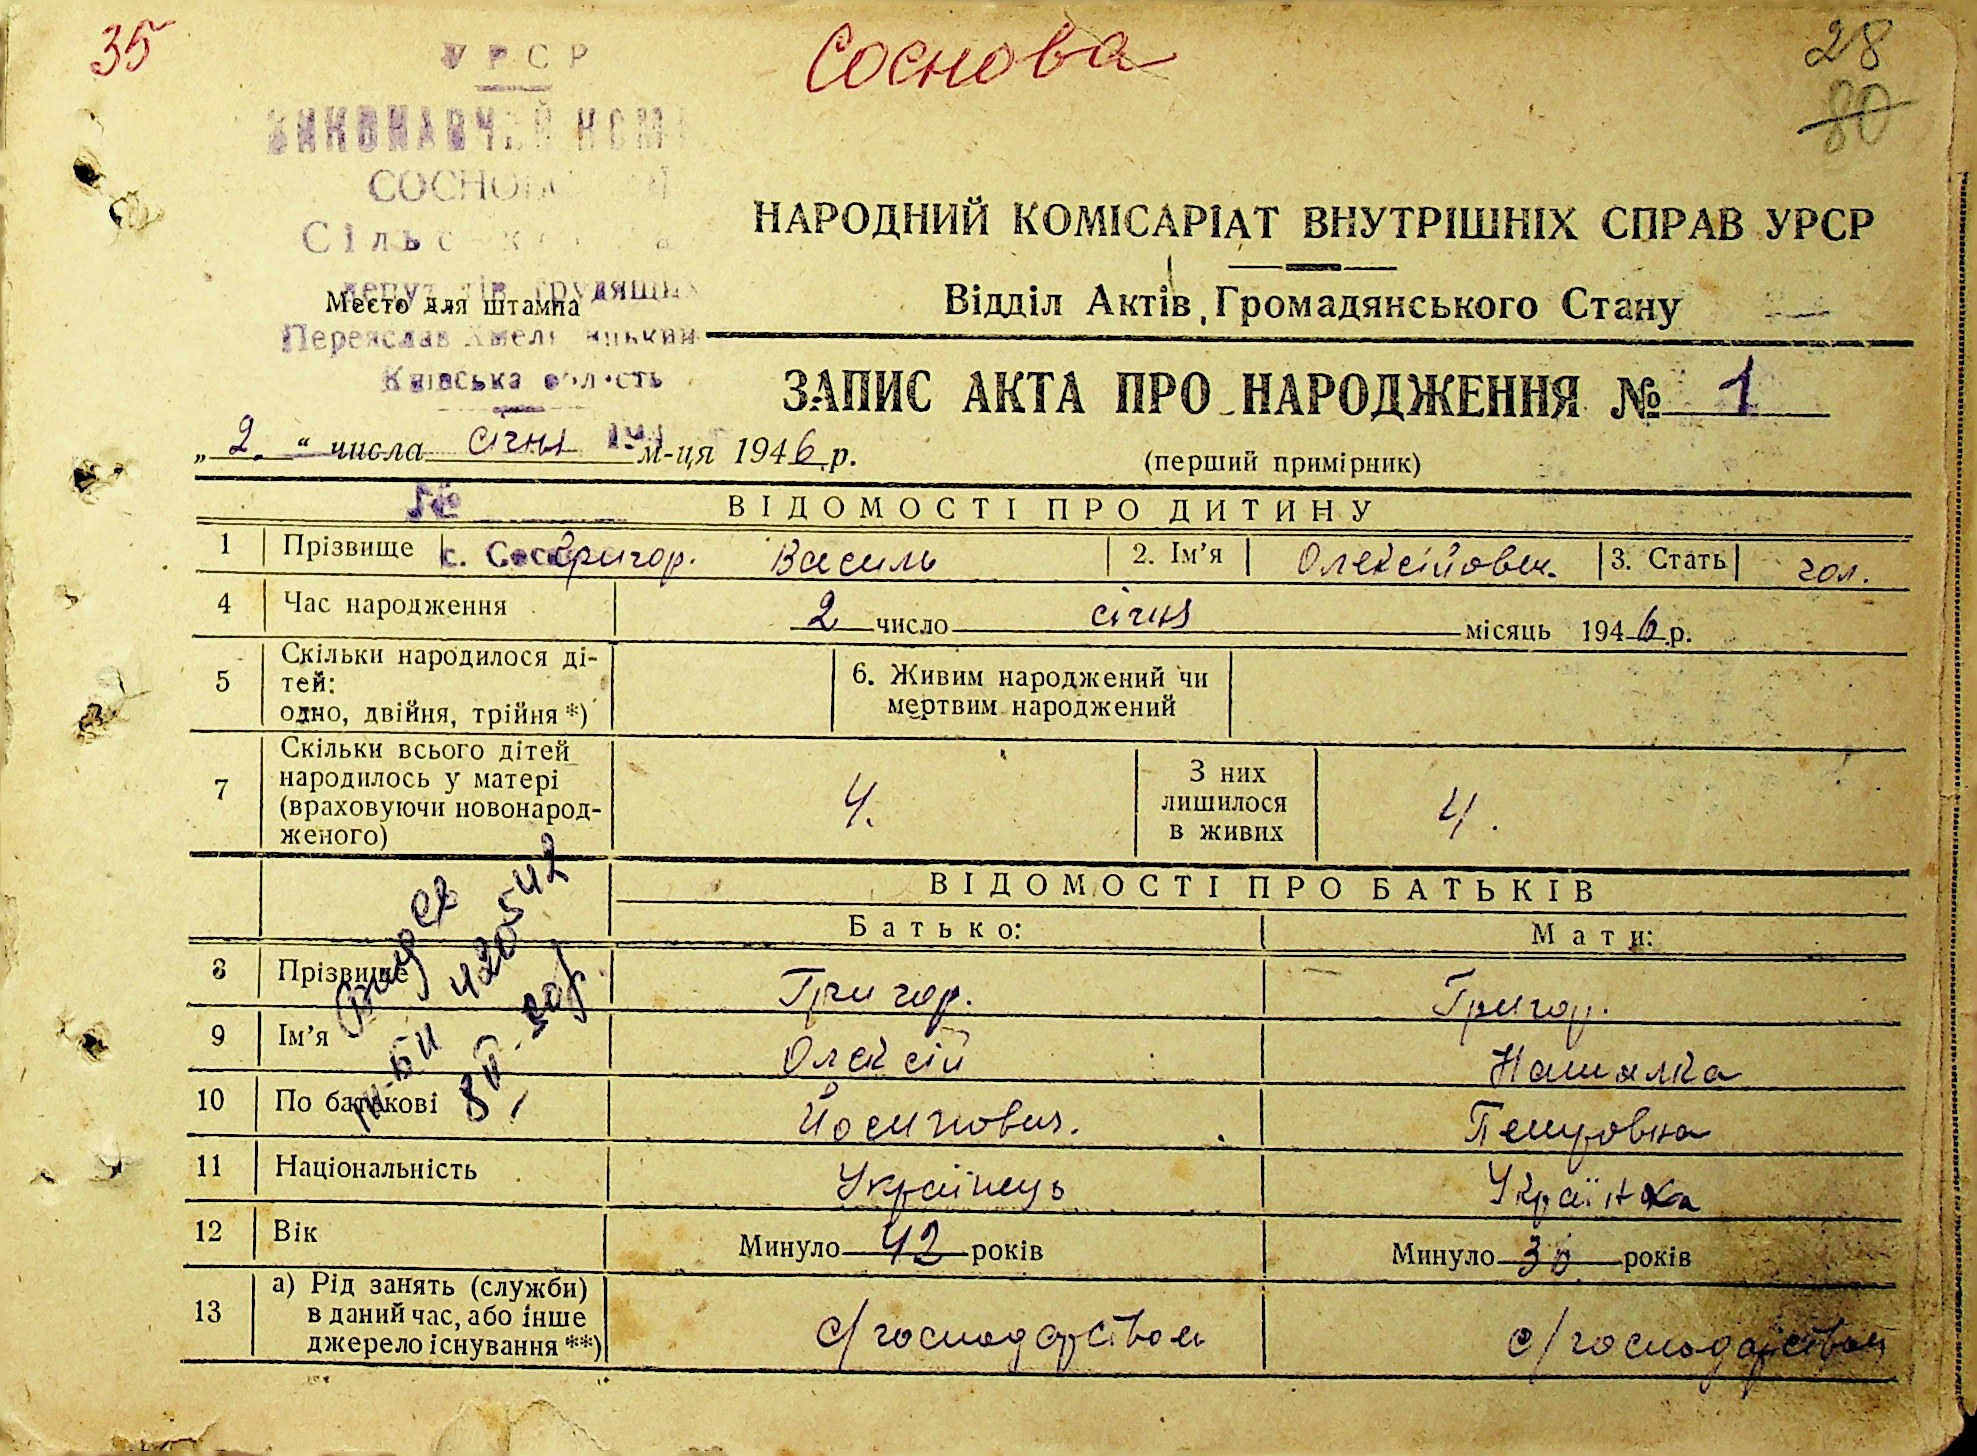 35
Соснова
28
80
УРСР
ВИКОНАВЧИЙ КОМ
СОСНО
Сільс
депутатів трудящих
Место для штампа
Переяслав Хмельницький
Київська область
НАРОДНИЙ КОМІСАРІАТ ВНУТРІШНІХ СПРАВ УРСР
Відділ Актів Громадянського Стану
ЗАПИС АКТА ПРО НАРОДЖЕННЯ № 1
„2.“ числа січня м-ця 1946 р.
(перший примірник)
№
ВІДОМОСТІ ПРО ДИТИНУ
1 Прізвище с. Григор. Василь 2. Ім’я Олексійович. 3. Стать чол.
4 Час народження 2 число січня місяць 1946 р.
5 Скільки народилося ді-
тей:
одно, двійня, трійня *)
6. Живим народжений чи
мертвим народжений
7 Скільки всього дітей
народилось у матері
(враховуючи новонарод-
женого)
4.
З них
лишилося
в живих
4.
ВІДОМОСТІ ПРО БАТЬКІВ
Батько: Мати:
8 Прізвище Григор. Григор.
9 Ім’я Олексій Наталка
10 По батькові Йосипович. Петровна
11 Національність Українець Українка
12 Вік Минуло 42 років Минуло 36 років
13 а) Рід занять (служби)
в даний час, або інше
джерело існування **)
с/господарством с/господарством